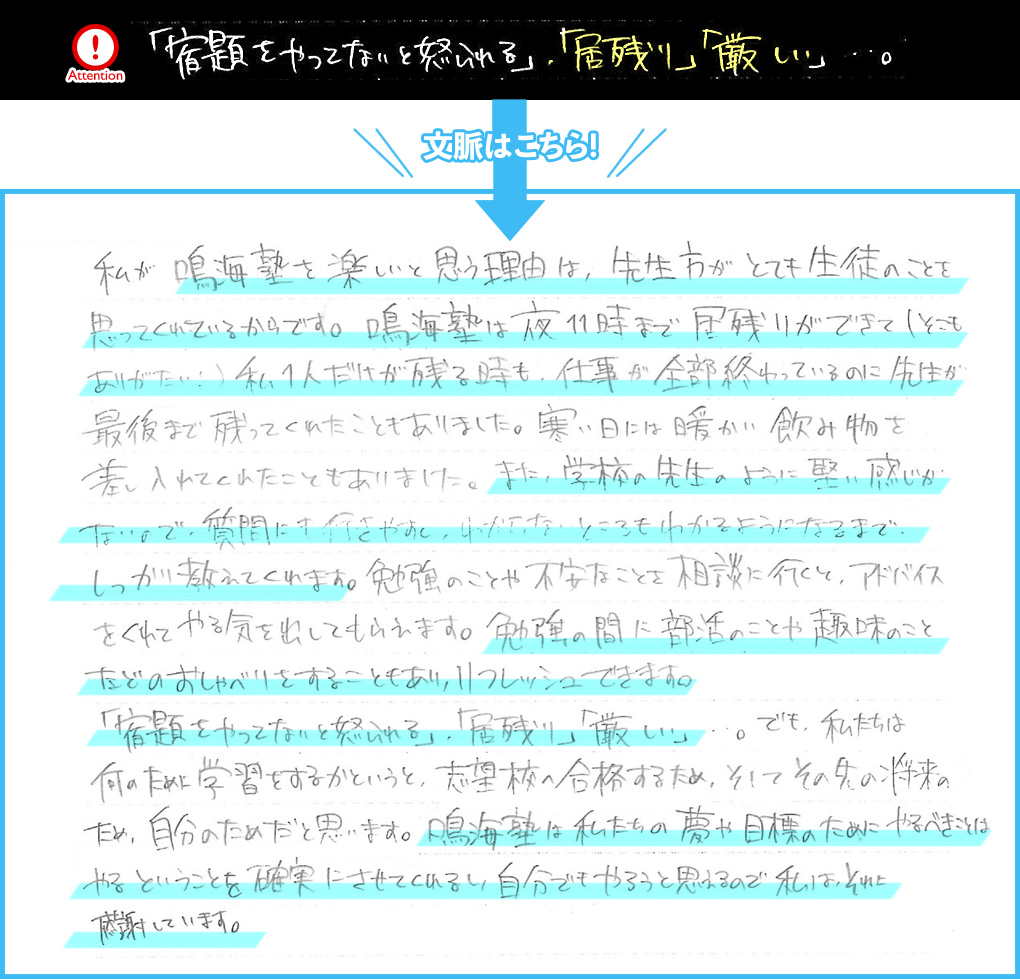 Attention
「宿題をやってないと怒られる」、「居残り」「厳しい」…。
文脈はこちら!
私が鳴海塾を楽しいと思う理由は、先生方がとても生徒のことを
思ってくれているからです。鳴海塾は夜11時まで居残りができて(そこも
ありがたい!)私1人だけが残る時も、仕事が全部終わっているのに先生が
最後まで残ってくれたこともありました。寒い日には暖かい飲み物を
差し入れてくれたこともありました。また、学校の先生のように堅い感じが
ないので、質問にも行きやすく、わからないところもわかるようになるまで、
しっかり教えてくれます。勉強のことや不安なことを相談に行くと、アドバイス
をくれてやる気を出してもらえます。勉強の間に部活のことや趣味のこと
などのおしゃべりをすることもあり、リフレッシュできます。
「宿題をやってないと怒られる」、「居残り」「厳しい」…。でも、私たちは
何のために学習をするかというと、志望校へ合格するため、そしてその先の将来の
ため、自分のためだと思います。鳴海塾は私たちの夢や目標のためにやるべきことは
やるということを確実にさせてくれるし、自分でもやろうと思えるので私は、それに
感謝しています。